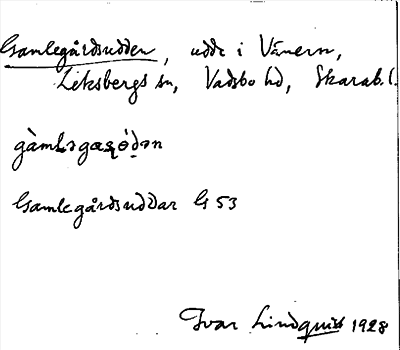 Gamlegårdsudden, udde i Vänern,
Leksbergs sn, Vadsbo hd, Skarab. l.
gàmləgaʂǿ̀dən
Gamlegårdsuddar G 53
Ivar Lindquist 1928